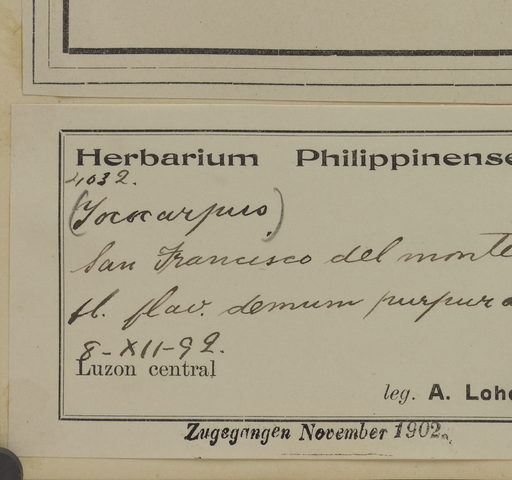 Herbarium Philippinense
4032.
(Toxocarpus)
San Francisco del monte
fl. flav. demum purpura
8-XII-92.
Luzon central
leg. A. Lohe
Zugegangen November 1902.